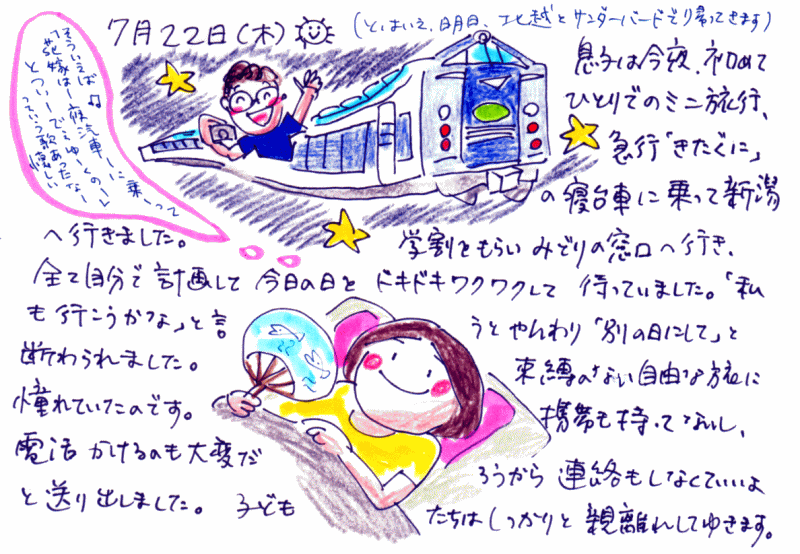 7月22日(木)
(とはいえ、明日、北越とサンダーバードで帰ってきます)
そういえば♫
「花嫁は、夜汽車ーに乗ーって
とつーいーでゆーくのー」
っていう歌あったなー
懐しい
息子は今夜、初めて
ひとりでのミニ旅行、
急行「きたぐに」
の寝台車に乗って新潟
へ行きました。 学割をもらいみどりの窓口へ行き、
全て自分で計画して今日の日をドキドキワクワクして待っていました。「私
も行こうかな」と言うとやんわり「別の日にして」と
断わられました。 束縛のない自由な旅に
憧れていたのです。 携帯も持ってないし、
電話かけるのも大変だろうから連絡もしなくていいよ
と送り出しました。 子どもたちはしっかりと親離れしてゆきます。